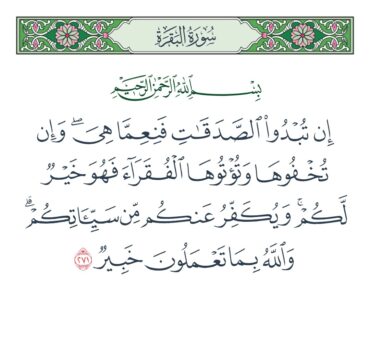 سُورَةُ البَقَرَةِ
بِسْمِ اللَّهِ الرَّحْمَٰنِ الرَّحِيمِ
إِن تُبْدُوا۟ ٱلصَّدَقَٰتِ فَنِعِمَّا هِىَ ۖ وَإِن
تُخْفُوهَا وَتُؤْتُوهَا ٱلْفُقَرَآءَ فَهُوَ خَيْرٌ
لَّكُمْ ۚ وَيُكَفِّرُ عَنكُم مِّن سَيِّـَٔاتِكُمْ ۗ
وَٱللَّهُ بِمَا تَعْمَلُونَ خَبِيرٌ ٢٧١